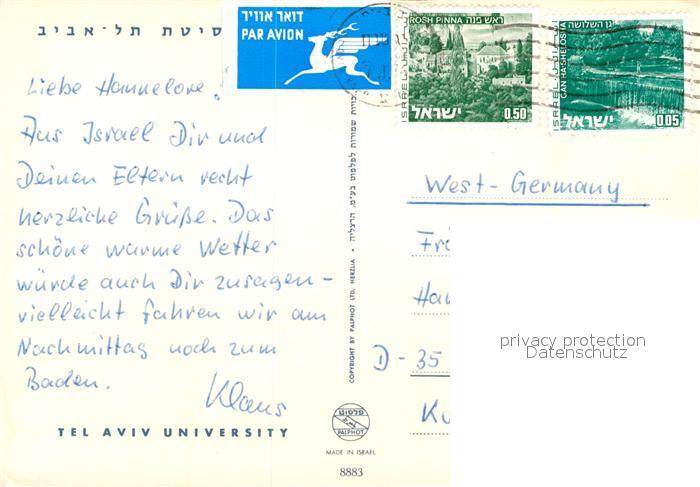 סיטת תל-אביב
דואר אוויר
PAR AVION
ROSH PINNA ראש פנה
ISRAEL
ישראל
0.50
גן השלושה
GAN HA-SHELOSHA
ISRAEL
ישראל
0.05
Liebe Hannelore,
Aus Israel Dir und
Deinen Eltern recht
herzliche Grüße. Das
schöne warme Wetter
würde auch Dir zusagen -
vielleicht fahren wir am
Nachmittag noch zum
Baden.
Klaus
TEL AVIV UNIVERSITY
COPYRIGHT BY PALPHOT LTD. HERZLIA • כל הזכויות שמורות לפלפוט בע"מ, הרצליה
פלפוט
PALPHOT
MADE IN ISRAEL
8883
West-Germany
Frä
Han
D - 35
K
privacy protection
Datenschutz